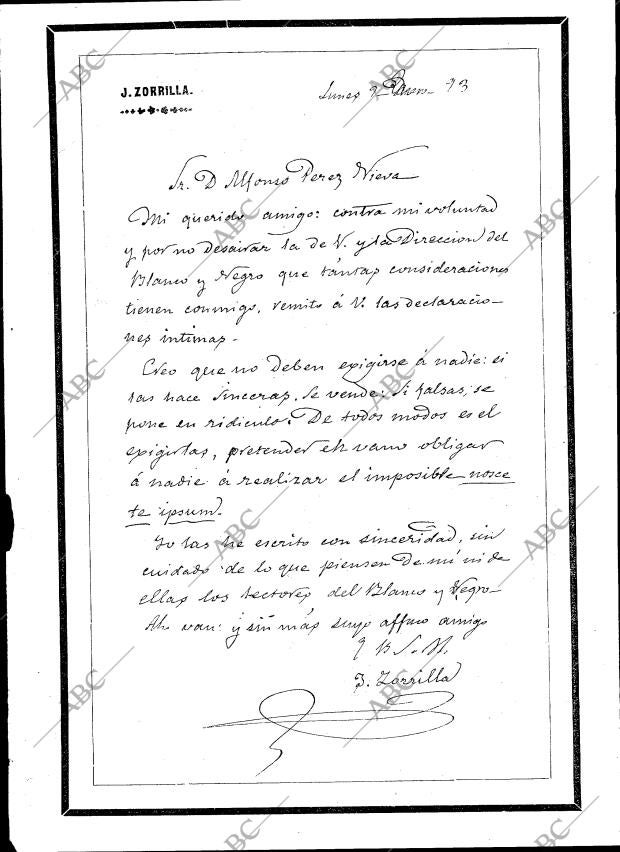 J. ZORRILLA.
Lunes 9 Enero 93
Sr. D Alfonso Perez Nieva
Mi querido amigo: contra mi voluntad
y por no desairar la de V. y la Direccion del
Blanco y Negro que tántas consideraciones
tienen conmigo, remito á V. las declaracio-
nes intimas.
Creo que no deben exigirse á nadie: si
las hace sinceras, se vende: si falsas, se
pone en ridiculo. De todos modos es el
exigirlas, pretender en vano obligar
á nadie á realizar el imposible nosce
te ipsum.
Yo las he escrito con sinceridad, sin
cuidado de lo que piensen de mí ni de
ellas los lectores del Blanco y Negro
Ahi van: y sin más suyo affmo amigo
q B S. M.
J. Zorrilla
ABC
ABC
ABC
ABC
ABC
ABC
ABC
ABC
ABC
ABC
ABC
ABC
ABC
ABC